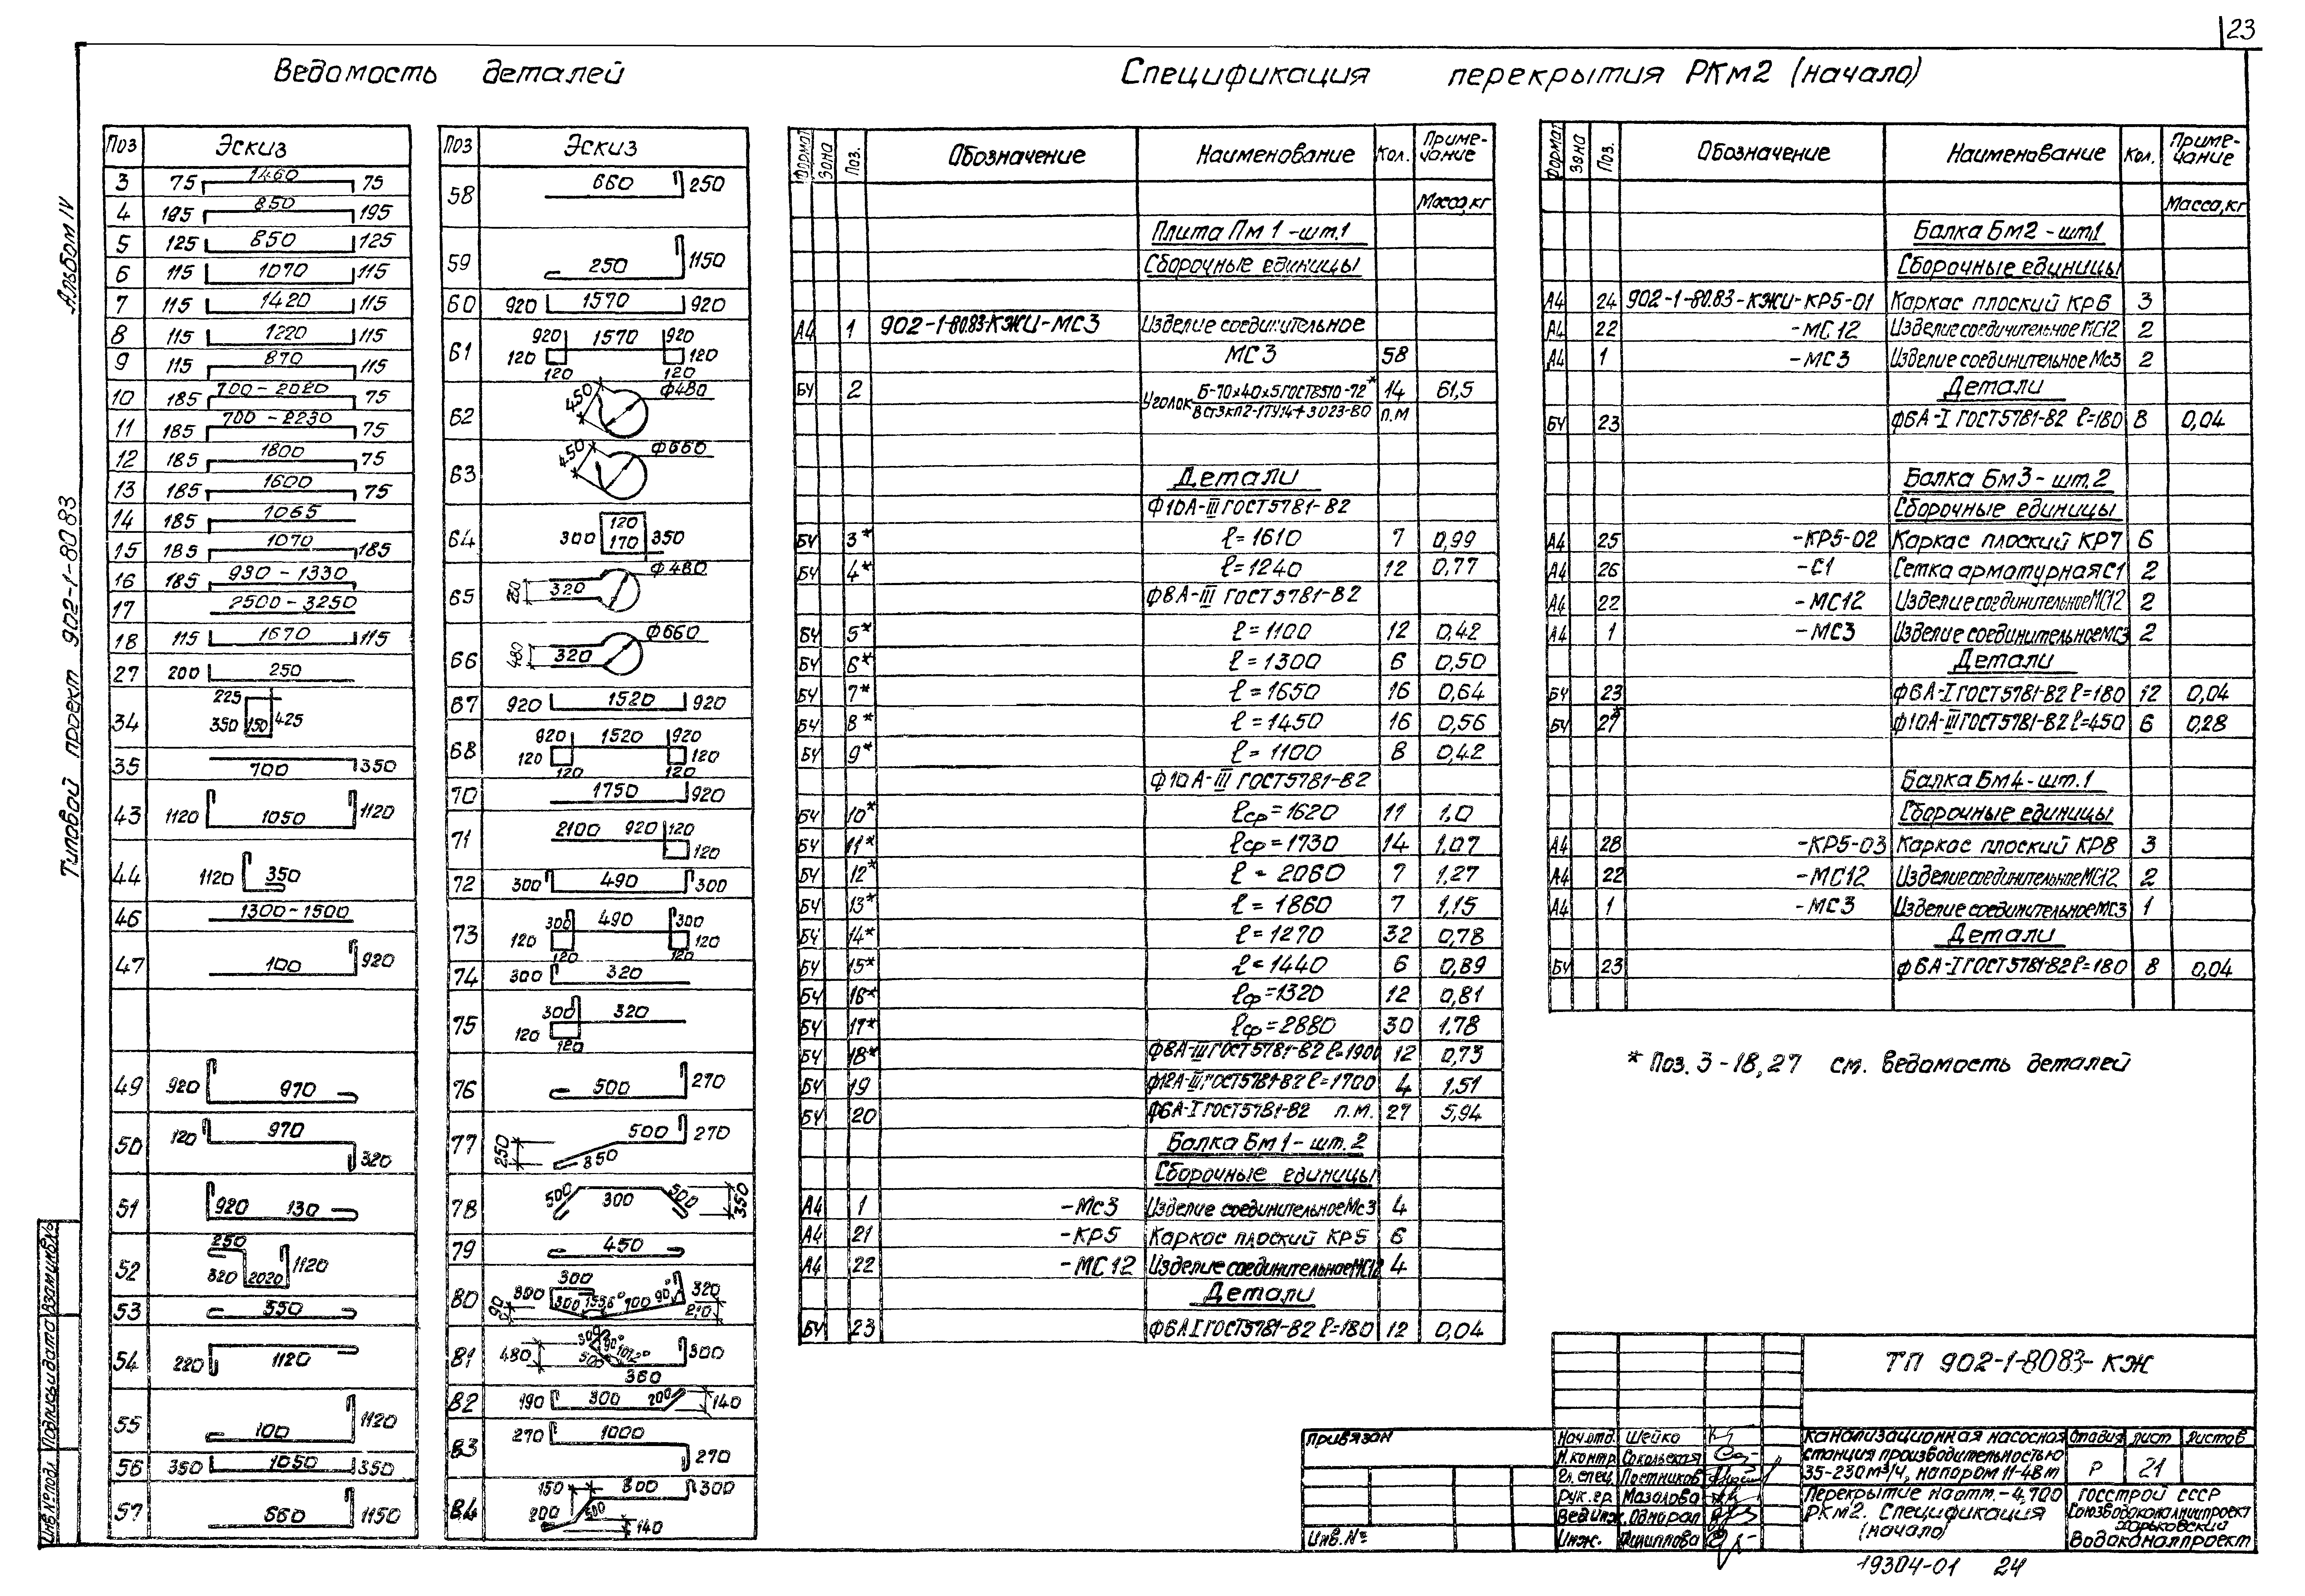 23
Ведомость деталей
Спецификация перекрытия РКм2 (начало)
Альбом IV
Типовой проект 902-1-80.83
Поз Эскиз
3 75 1460 75
4 195 850 195
5 125 850 125
6 115 1070 115
7 115 1420 115
8 115 1220 115
9 115 870 115
10 185 700-2020 75
11 185 700-2230 75
12 185 1800 75
13 185 1600 75
14 185 1065
15 185 1070 185
16 185 930-1330
17 2500-3250
18 115 1670 115
27 200 250
34 225 350 150 425
35 700 350
43 1120 1050 1120
44 1120 350
46 1300-1500
47 100 920
49 920 970
50 120 970 320
51 920 130
52 250 320 2020 1120
53 550
54 220 1120
55 100 1120
56 350 1050 350
57 660 1150
Поз Эскиз
58 660 250
59 250 1150
60 920 1570 920
61 920 1570 920 120 120 120 120
62 450 Ф480
63 450 Ф660
64 300 120 170 350
65 320 Ф480
66 480 320 Ф660
67 920 1520 920
68 920 1520 920 120 120 120 120
70 1750 920
71 2100 920 120 120
72 300 490 300
73 300 490 300 120 120 120 120
74 300 320
75 300 320 120 120
76 500 270
77 250 850 500 270
78 500 300 500 350
79 450
80 300 300 300 900 90° 320 210 90
81 480 300 500 360 300
82 190 300 200 140
83 270 1000 270
84 150 800 300 200 500 140
Формат Зона Поз. Обозначение Наименование Кол. Примечание
Масса, кг
Плита Пм 1 - шт.1
Сборочные единицы
А4 1 902-1-80.83-КЖИ-МС3 Изделие соединительное
МС3 58
БЧ 2 Уголок Б-70х40х5 ГОСТ8510-72* 14 61,5
п.м
Детали
Ф10А-III ГОСТ5781-82
БЧ 3* ℓ=1610 7 0,99
БЧ 4* ℓ=1240 12 0,77
Ф8А-III ГОСТ5781-82
БЧ 5* ℓ=1100 12 0,42
БЧ 6* ℓ=1300 6 0,50
БЧ 7* ℓ=1650 16 0,64
БЧ 8* ℓ=1450 16 0,56
БЧ 9* ℓ=1100 8 0,42
Ф10А-III ГОСТ5781-82
БЧ 10* ℓср=1620 11 1,0
БЧ 11* ℓср=1730 14 1,07
БЧ 12* ℓ=2060 7 1,27
БЧ 13* ℓ=1860 7 1,15
БЧ 14* ℓ=1270 32 0,78
БЧ 15* ℓ=1440 6 0,89
БЧ 16* ℓср=1320 12 0,81
БЧ 17* ℓср=2880 30 1,78
БЧ 18* Ф8А-III ГОСТ5781-82 ℓ=1900 12 0,73
БЧ 19 Ф12А-III ГОСТ5781-82 ℓ=1700 4 1,51
БЧ 20 Ф6А-I ГОСТ5781-82 п.м. 27 5,94
Балка Бм 1 - шт. 2
Сборочные единицы
А4 1 -МС3 Изделие соединительное МС3 4
А4 21 -КР5 Каркас плоский КР5 6
А4 22 -МС12 Изделие соединительное МС12 4
Детали
БЧ 23 Ф6АI ГОСТ5781-82 ℓ=180 12 0,04
Формат Зона Поз. Обозначение Наименование Кол. Примечание
Масса, кг
Балка Бм2 - шт1
Сборочные единицы
А4 24 902-1-80.83-КЖИ-КР5-01 Каркас плоский КР6 3
А4 22 -МС12 Изделие соединительное МС12 2
А4 1 -МС3 Изделие соединительное МС3 2
Детали
БЧ 23 Ф6А-I ГОСТ5781-82 ℓ=180 8 0,04
Балка Бм3 - шт. 2
Сборочные единицы
А4 25 -КР5-02 Каркас плоский КР7 6
А4 26 -С1 Сетка арматурная С1 2
А4 22 -МС12 Изделие соединительное МС12 2
А4 1 -МС3 Изделие соединительное МС3 2
Детали
БЧ 23 Ф6А-I ГОСТ5781-82 ℓ=180 12 0,04
БЧ 27* Ф10А-III ГОСТ5781-82 ℓ=450 6 0,28
Балка Бм4 - шт.1
Сборочные единицы
А4 28 -КР5-03 Каркас плоский КР8 3
А4 22 -МС12 Изделие соединительное МС12 2
А4 1 -МС3 Изделие соединительное МС3 1
Детали
БЧ 23 Ф6А-I ГОСТ5781-82 ℓ=180 8 0,04
* Поз. 3-18, 27 см. ведомость деталей
ТП 902-1-80.83-КЖ
Привязан
Инв. №
Нач.отд. Шейко
Н.контр. Сокольская
Гл. спец. Постников
Рук. гр. Мазалова
Вед.инж. Однорал
Инж. Филиппова
Канализационная насосная
станция производительностью
35-230м³/ч, напором 11-48м
Стадия Лист Листов
Р 21
Перекрытие на отм. -4,700
РКм2. Спецификация
(начало)
Госстрой СССР
Союзводоканалпроект
Харьковский
Водоканалпроект
Инв.№подл. Подпись и дата Взам.инв.№
19304-01 24